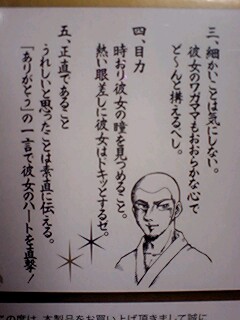 三、細かいことは気にしない。
彼女のワガママもおおらかな心で
ど〜んと構えるべし。
四、目力
時おり彼女の瞳を見つめること。
熱い眼差しに彼女はドキッとするゼ。
五、正直であること
うれしいと思ったことは素直に伝える。
「ありがとう」の一言で彼女のハートを直撃！
この度は、本製品をお買い上げ頂きまして誠に